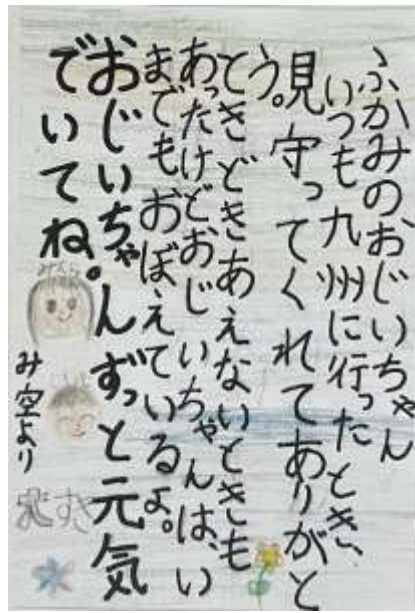 ふかみのおじいちゃん
いつも九州に行ったとき、
見守ってくれてありがと
う。
ときどきあえないときも
あったけどおじいちゃんは、い
までもおぼえているよ。
おじいちゃんずっと元気
でいてね。
み空より